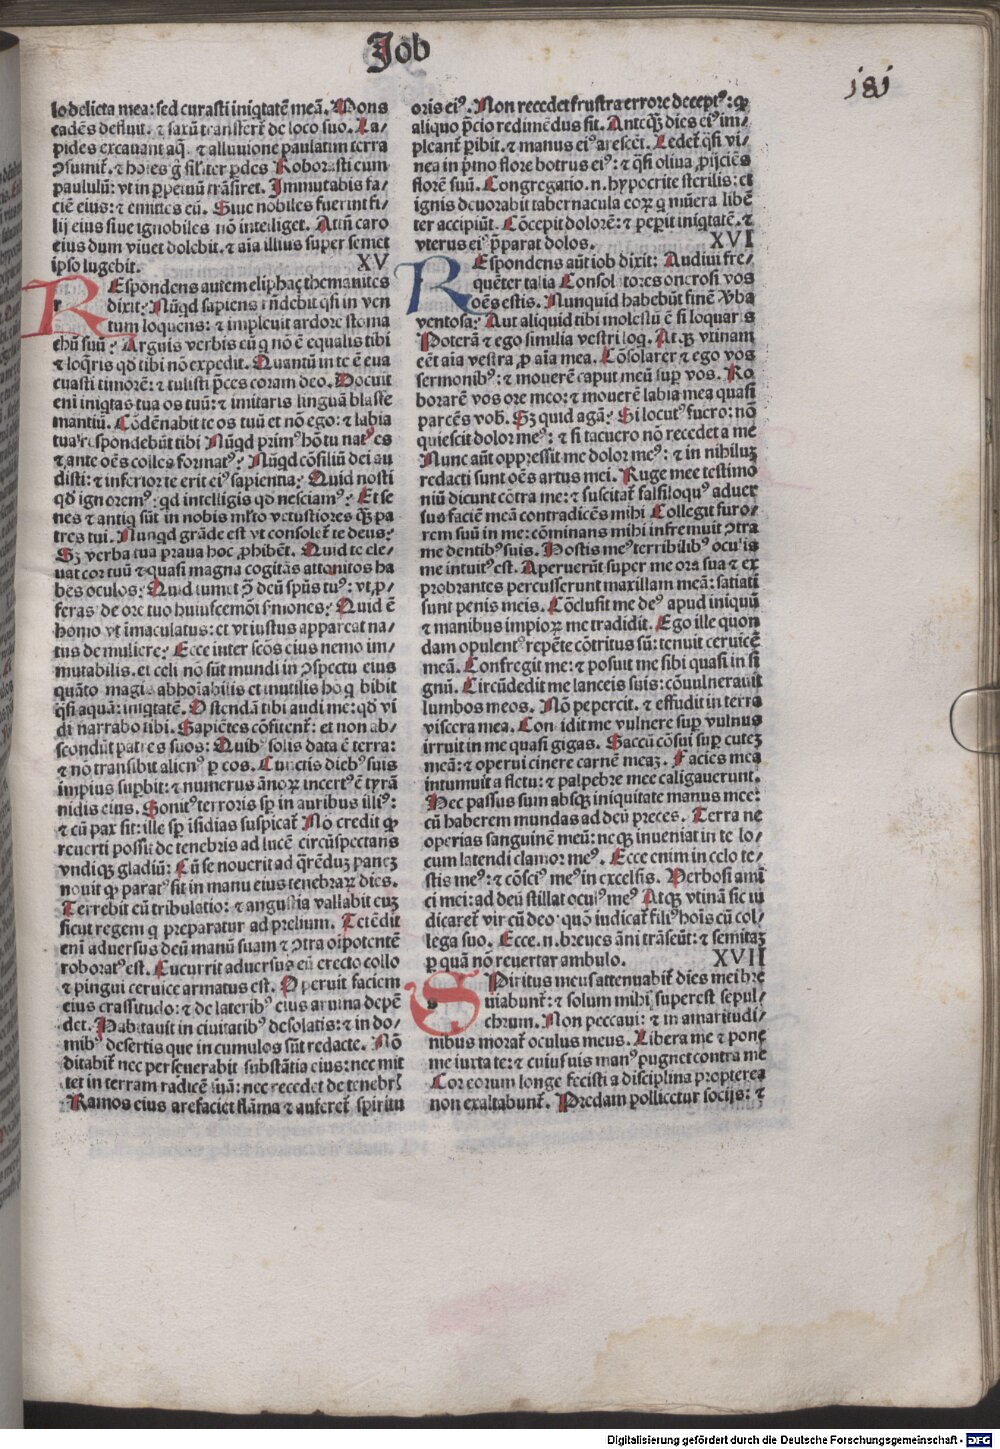 Job
181
lo delicta mea: sed curasti iniqtatē meā. Mons
cadēs defluit. ⁊ saxū transfert᷑ de loco suo. La⸗
pides excauant aq̄. ⁊ alluuione paulatim terra
ↄsumit᷑. ⁊ hoīes ḡ sil'iter ꝑdes Roborasti eum
paululū: vt in ꝑpetuū trāsiret. Immutabis fa⸗
ciē eius: ⁊ emittes eū. Siue nobiles fuerint fi⸗
lij eius siue ignobiles nō intelliget. Attñ caro
eius dum viuet dolebit. ⁊ aīa illius super semet
ipso lugebit. XV
REspondens autem eliphaȥ themanites
dixit: Nūqd sapiens rn̄debit q̄si in ven
tum loquens: ⁊ impleuit ardore stoma
chū suū? Arguis verbis eū q nō ē equalis tibi
⁊ loq̄ris qd tibi nō expedit. Quantū in te ē eua
cuasti timorē: ⁊ tulisti p̄ces coram deo. Docuit
eni iniqtas tua os tuū: ⁊ imitaris linguā blasfe
mantiū. Cōdēnabit te os tuū et nō ego: ⁊ labia
tua respondebūt tibi Nūqd primꝰ hō tu natꝰ es
⁊ ante oēs colles formatꝰ? Nūqd cōsiliū dei au
disti: ⁊ inferior te erit eiꝰ sapientia? Quid nosti
qd ignoremꝰ: qd intelligis qd nesciamꝰ? Et se
nes ⁊ antiq sūt in nobis ml̄to vetustiores qȝ pa
tres tui. Nunqd grāde est vt consolet᷑ te deus?
Sȝ verba tua praua hoc ꝓhibēt. Quid te ele⸗
uat cor tuū ⁊ quasi magna cogitās attonitos ha
bes oculos? Quid tumet ↄ̄ deū spūs tuꝰ: vt ꝓ⸗
feras de ore tuo huiuscemōi s̄mones? Quid ē
homo vt īmaculatus: et vt iustus appareat na⸗
tus de muliere? Ecce inter scōs eius nemo im⸗
mutabilis. et celi nō sūt mundi in ↄspectu eius
quāto magis abhoīabilis et inutilis ho q bibit
q̄si aquā: iniqtatē. Ostendā tibi audi me: qd vi
di narrabo tibi. Sapiētes cōfitent᷑: et non ab⸗
scondūt patres suos: Quibꝰ solis data ē terra:
⁊ nō transibit alienꝰ ꝑ eos. Cunctis diebꝰ suis
impius suꝑbit: ⁊ numerus ānoꝝ incertꝰ ē tyrā
nidis eius. Sonitꝰ terroris sꝑ in auribus illiꝰ:
⁊ cū pax sit: ille sꝑ īsidias suspicat᷑ Nō credit ꝙ
reuerti possit de tenebris ad lucē circūspectans
vndiqȝ gladiū: Cū se nouerit ad q̄rēdū paneȝ
nouit ꝙ paratꝰ sit in manu eius tenebraꝝ dies.
Terrebit eū tribulatio: ⁊ angustia vallabit euȝ
sicut regem q preparatur ad prelium. Tetēdit
enī aduersus deū manū suam ⁊ ↄtra oīpotentē
roboratꝰ est. Cucurrit aduersus eū erecto collo
⁊ pingui ceruice armatus est. Operuit faciem
eius crassitudo: ⁊ de lateribꝰ eius aruina depē
det. Habitauit in ciuitatibꝰ desolatis: ⁊ in do⸗
mibꝰ desertis que in cumulos sūt redacte. Nō
ditabit᷑ nec perseuerabit substātia eius: nec mit
tet in terram radicē suā: nec recedet de tenebr̄
Ramos eius arefaciet flāma ⁊ auferet᷑ spiritu
oris eiꝰ. Non recedet frustra errore deceptꝰ: ꝙ
aliquo p̄cio redimēdus sit. Anteqȝ dies eiꝰ im⸗
pleant᷑ ꝑibit. ⁊ manus eiꝰ arescet. Ledet᷑ q̄si vi⸗
nea in p̄mo flore botrus eiꝰ: ⁊ q̄si oliua ꝓijciēs
florē suū. Congregatio.n. hypocrite sterilis: et
ignis deuorabit tabernacula eoꝝ q mūera libē
ter accipiūt. Cōcepit dolorē: ⁊ peperit iniqtatē. ⁊
vterus eiꝰ p̄parat dolos. XVI
REspondens aūt iob dixit: Audiui fre⸗
quēter talia Consolatores onerosi vos
oēs estis. Nunquid habebūt finē v̄ba
ventosa? Aut aliquid tibi molestū ē si loquaris
Poterā ⁊ ego similia vestri loq. Atqȝ vtinam
eēt aīa vestra ꝓ aīa mea. Cōsolarer ⁊ ego vos
sermonibꝰ: ⁊ mouerē caput meū suꝑ vos. Ro
borarē vos ore meo: ⁊ mouerē labia mea quasi
parcēs vob̄. Sȝ quid agā? Si locutꝰ fuero: nō
quiescit dolor meꝰ: ⁊ si tacuero nō recedet a me
Nunc aūt oppressit me dolor meꝰ: ⁊ in nihiluȝ
redacti sunt oēs artus mei. Ruge mee testimo
niū dicunt cōtra me: ⁊ suscitat᷑ falsiloquꝰ aduer
sus faciē meā contradicēs mihi Collegit furo⸗
rem suū in me: cōminans mihi infremuit ↄtra
me dentibꝰ suis. Hostis meꝰ terribilibꝰ oculis
me intuitꝰ est. Aperuerūt super me ora sua ⁊ ex
probrantes percusserunt maxillam meā: satiati
sunt penis meis. Cōclusit me deꝰ apud iniquū
⁊ manibus impioꝝ me tradidit. Ego ille quon
dam opulentꝰ repēte cōtritus sū: tenuit ceruicē
meā. Confregit me: ⁊ posuit me sibi quasi in si
gnū. Circūdedit me lanceis suis: cōuulnerauit
lumbos meos. Nō pepercit. ⁊ effudit in terra
viscera mea. Concidit me vulnere suꝑ vulnus
irruit in me quasi gigas. Saccū cōsui suꝑ cuteȝ
meā: ⁊ operui cinere carnē meaȝ. Facies mea
intumuit a fletu: ⁊ palpebre mee caligauerunt.
Hec passus sum absqȝ iniquitate manus mee:
cū haberem mundas ad deū preces. Terra ne
operias sanguinē meū: neqȝ inueniat in te lo⸗
cum latendi clamor meꝰ. Ecce enim in celo te⸗
stis meꝰ: ⁊ cōsciꝰ meꝰ in excelsis. Verbosi ami
ci mei: ad deū stillat oculꝰ meꝰ Atqȝ vtinā sic iu
dicaret᷑ vir cū deo: quō iudicat᷑ filiꝰ hoīs cū col⸗
lega suo. Ecce.n. breues āni trāseūt: ⁊ semitaȝ
ꝑ quā nō reuertar ambulo. XVII
SPiritus meus attenuabit᷑ dies mei bre
uiabunt᷑: ⁊ solum mihi superest sepul⸗
chrum. Non peccaui: ⁊ in amaritudi⸗
nibus morat᷑ oculus meus. Libera me ⁊ pone
me iuxta te: ⁊ cuiusuis manꝰ pugnet contra me
Cor eorum longe fecisti a disciplina propterea
non exaltabunt᷑. Predam pollicetur socijs: ⁊
Digitalisierung gefördert durch die Deutsche Forschungsgemeinschaft - DFG